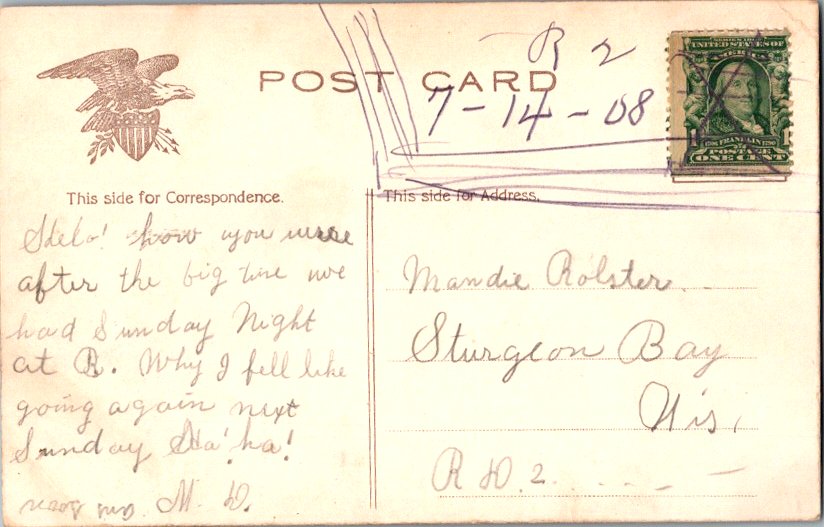 R 2
POST CARD
7-14-08
SERIES 1902
UNITED STATES OF
AMERICA
1 1
1706 FRANKLIN 1790
OF
POSTAGE
ONE CENT
This side for Correspondence.
Helo! how you were
after the big time we
had Sunday Night
at R. Why I fell like
going again next
Sunday Ha! ha!
M. D.
This side for Address.
Mandie Rolster
Sturgeon Bay
Wis,
R D. 2